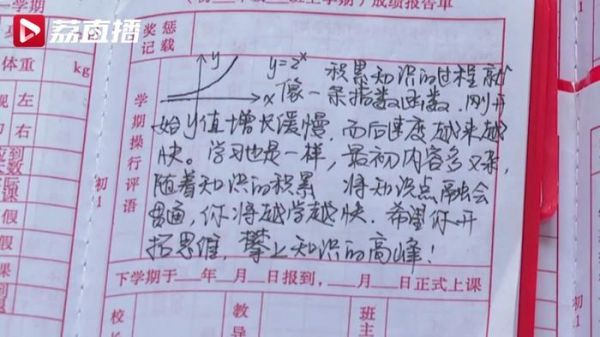 荔直播
学期
成绩报告单
奖惩记载
y
x
y=2ˣ
积累知识的过程就
像一条指数函数,刚开
始y值增长缓慢,而后速度越来越
快。学习也是一样,最初内容多又杂,
随着知识的积累 将知识点融会
贯通,你将越学越快.希望你开
拓思维,攀上知识的高峰!
学期操行评语
初1
体重 kg
视 左
力 右
课
假
假
课
下学期于 年 月 日报到, 月 日正式上课
校
教导
班主
初1